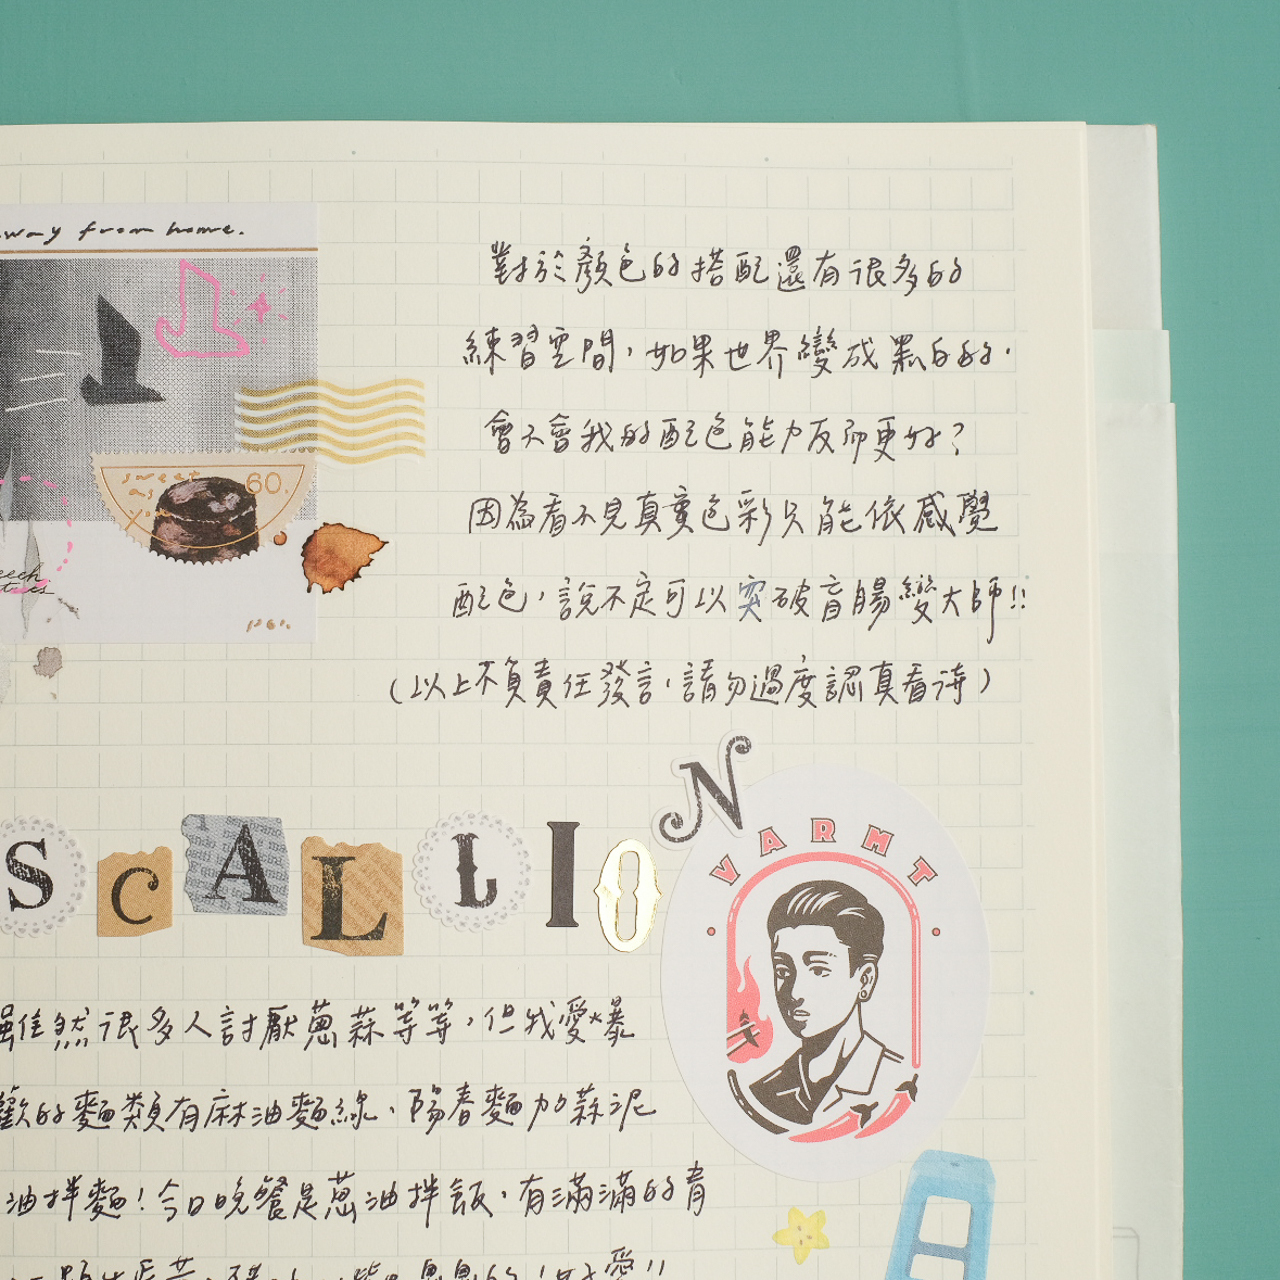 way from home.
sweet
as
you
60.
對於顏色的搭配還有很多的
練習空間，如果世界變成黑白的，
會不會我的配色能力反而更好？
因為看不見真實色彩只能依感覺
配色，說不定可以突破盲腸變大師!!
(以上不負責任發言，請勿過度認真看待)
SCALLION
VARMT
雖然很多人討厭蔥蒜等等，但我愛爆
歡的麵類有麻油麵線、陽春麵加蒜泥
油拌麵！今日晚餐是蔥油拌飯，有滿滿的青